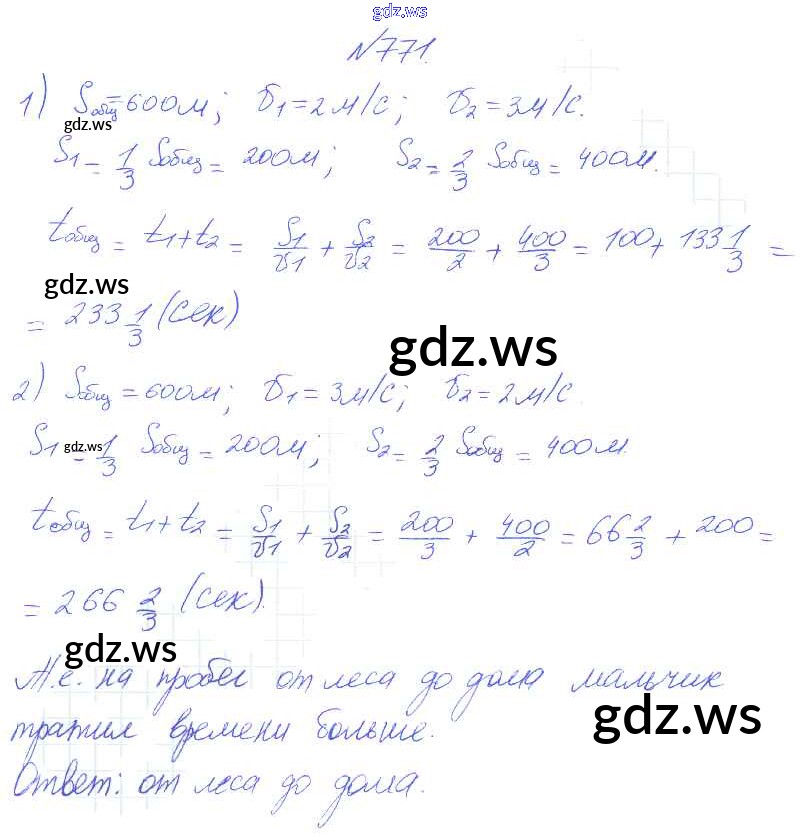 gdz.ws
№771.
1) Sобщ=600м; v1=2м/с; v2=3м/с.
gdz.ws
S1=1/3 Sобщ=200м; S2=2/3 Sобщ=400м.
tобщ=t1+t2=S1/v1+S2/v2=200/2+400/3=100+133 1/3=
gdz.ws
=233 1/3 (сек)
gdz.ws
2) Sобщ=600м; v1=3м/с; v2=2м/с.
S1=1/3 Sобщ=200м; S2=2/3 Sобщ=400м.
gdz.ws
tобщ=t1+t2=S1/v1+S2/v2=200/3+400/2=66 2/3+200=
=266 2/3 (сек).
gdz.ws
Т.е. на пробег от леса до дома мальчик
gdz.ws
тратил времени больше.
Ответ: от леса до дома.
gdz.ws